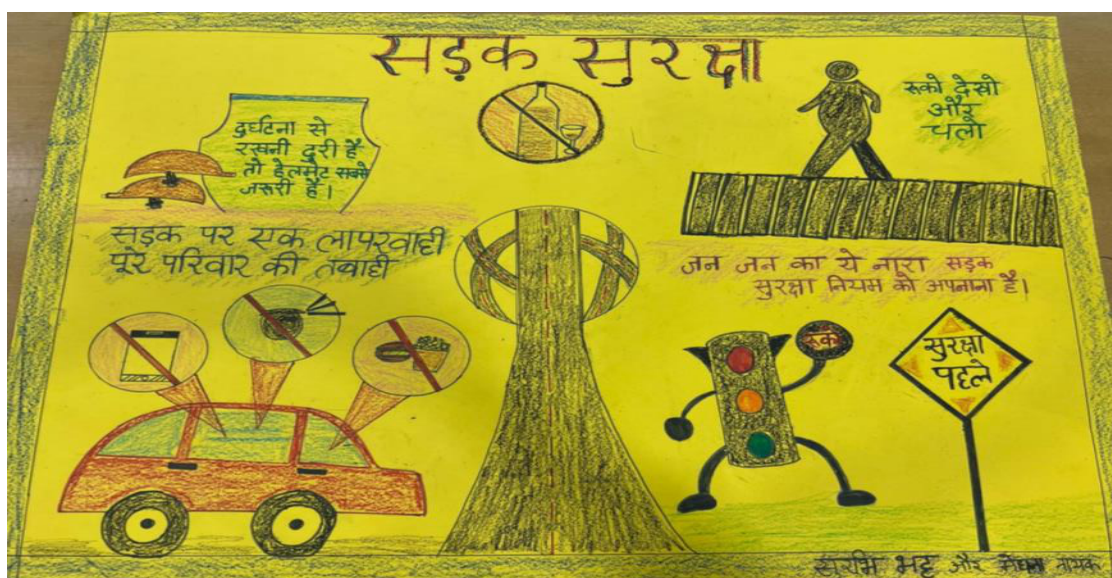 सड़क सुरक्षा
दुर्घटना से
रखनी दुरी है
तो हेलमेट सबसे
जरूरी है।
रुको देखो
और
चलो
सड़क पर एक लापरवाही
पूरे परिवार की तबाही
जन जन का ये नारा सड़क
सुरक्षा नियम को अपनाना है।
रुको
सुरक्षा
पहले
सुरभि भट्ट और मेघना नायक